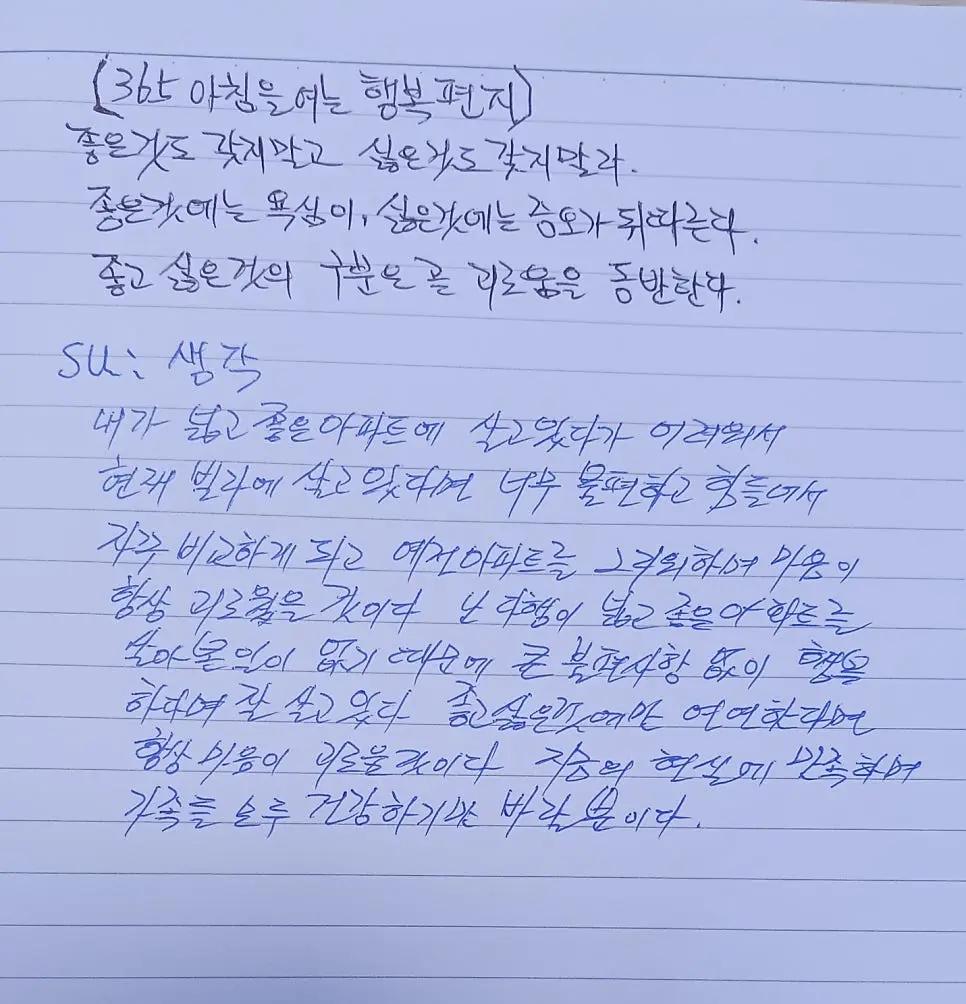 (365 아침을 여는 행복편지)
좋은것도 갖지말고 싫은것도 갖지말라.
좋은것에는 욕심이, 싫은것에는 증오가 뒤따른다.
좋고 싫은것의 구분은 곧 괴로움을 동반한다.
SU: 생각
내가 넓고 좋은아파트에 살고있다가 어려워서
현재 빌라에 살고있다며 너무 불편하고 힘들어서
자주 비교하게 되고 예전아파트를 그리워하며 마음이
항상 괴로웠을 것이다 난 다행이 넓고 좋은아파트를
살아본일이 없기 때문에 큰 불편사항 없이 행복
하다며 잘 살고있다 좋고싫은것에만 연연한다면
항상 마음이 괴로울것이다 지금의 현실에 만족하며
가족들 모두 건강하기만 바랄 뿐이다.